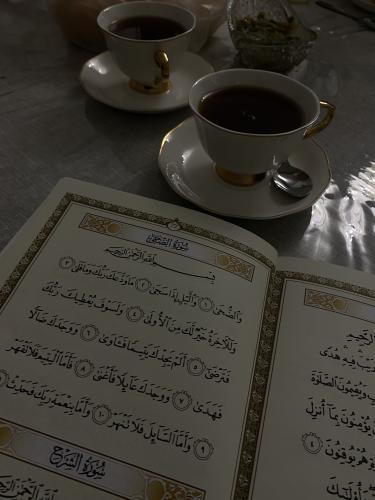 سُورَةُ الضُّحَىٰ
بِسْمِ اللَّهِ الرَّحْمَٰنِ الرَّحِيمِ
وَالضُّحَىٰ ١ وَاللَّيْلِ إِذَا سَجَىٰ ٢ مَا وَدَّعَكَ رَبُّكَ وَمَا قَلَىٰ ٣
وَلَلْآخِرَةُ خَيْرٌ لَّكَ مِنَ الْأُولَىٰ ٤ وَلَسَوْفَ يُعْطِيكَ رَبُّكَ
فَتَرْضَىٰ ٥ أَلَمْ يَجِدْكَ يَتِيمًا فَآوَىٰ ٦ وَوَجَدَكَ ضَالًّا
فَهَدَىٰ ٧ وَوَجَدَكَ عَائِلًا فَأَغْنَىٰ ٨ فَأَمَّا الْيَتِيمَ فَلَا تَقْهَرْ
٩ وَأَمَّا السَّائِلَ فَلَا تَنْهَرْ ١٠ وَأَمَّا بِنِعْمَةِ رَبِّكَ فَحَدِّثْ
سُورَةُ الشَّرْحِ
اللَّهِ الرَّحْمَٰنِ الرَّحِيمِ
فِيهِ هُدًى
وَيُقِيمُونَ الصَّلَاةَ
يُؤْمِنُونَ بِمَا أُنزِلَ
هُمْ يُوقِنُونَ ٤